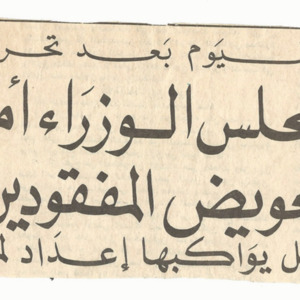 ـيَوم بَعـد تحر
ـجلس الـوزرَاء أم
ـعويض المفقودين
ـل يوَاكبها إعـدَاد لم